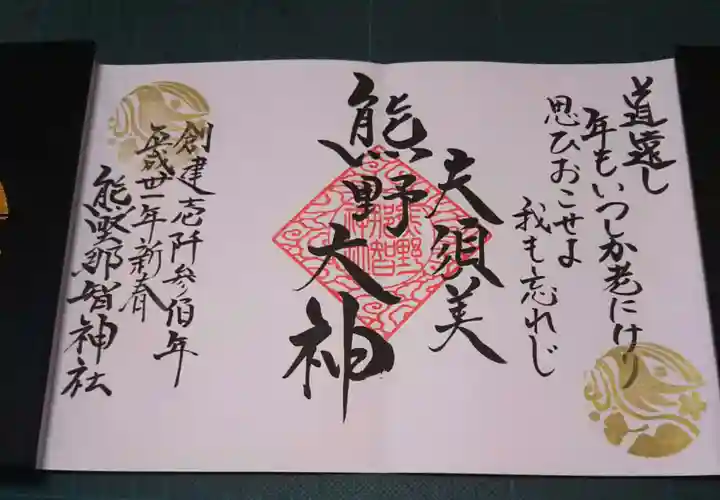 道遠し
年もいつしか老にけり
思ひおこせよ
我も忘れじ
夫須美
熊野大神
創建壱阡参伯年
平成廿一年新春
熊野那智神社